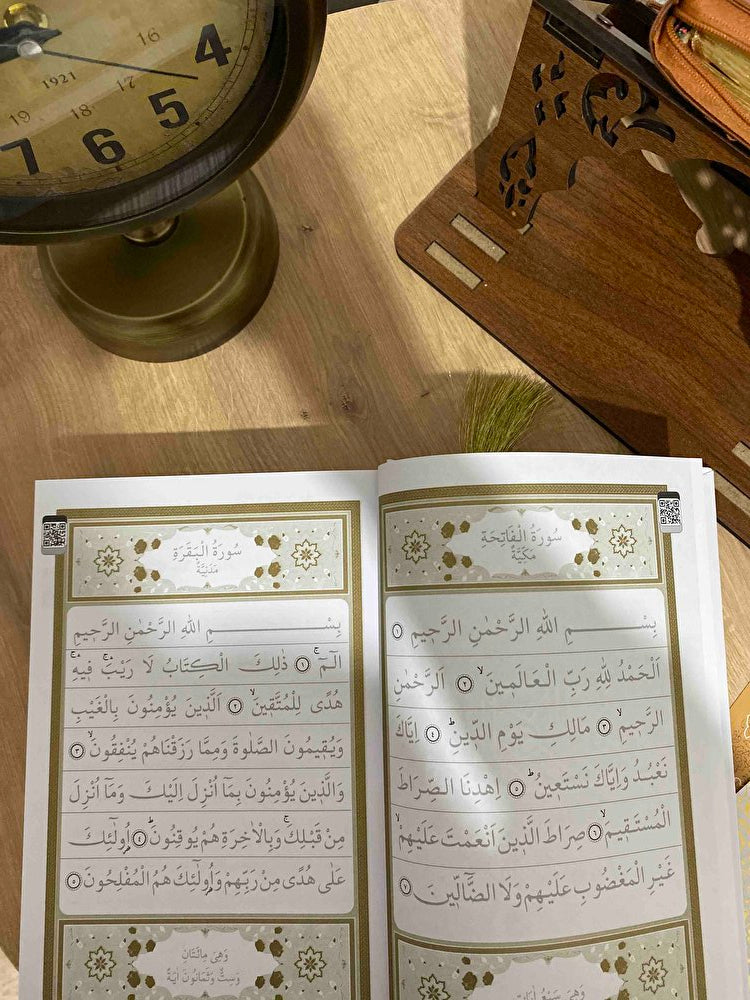 16
4
1921
17
5
19
18
7
6
سُورَةُ الْفَاتِحَةِ
مَكِّيَّةٌ
بِسْــــــمِ اللهِ الرَّحْمٰنِ الرَّحِيمِ ١
اَلْحَمْدُ لِلّٰهِ رَبِّ الْعَالَمِينَۙ ٢ اَلرَّحْمٰنِ
الرَّحِيمِۙ ٣ مَالِكِ يَوْمِ الدِّينِۜ ٤ اِيَّاكَ
نَعْبُدُ وَاِيَّاكَ نَسْتَعِينُۜ ٥ اِهْدِنَا الصِّرَاطَ
الْمُسْتَقِيمَۙ ٦ صِرَاطَ الَّذِينَ اَنْعَمْتَ عَلَيْهِمْۙ
غَيْرِ الْمَغْضُوبِ عَلَيْهِمْ وَلَا الضَّٓالِّينَ ٧
سُورَةُ الْبَقَرَةِ
مَدَنِيَّةٌ
بِسْــــــمِ اللهِ الرَّحْمٰنِ الرَّحِيمِ
الٓمٓۚ ١ ذٰلِكَ الْكِتَابُ لَا رَيْبَۚ فِيهِۚ
هُدًى لِلْمُتَّقِينَۙ ٢ اَلَّذِينَ يُؤْمِنُونَ بِالْغَيْبِ
وَيُقِيمُونَ الصَّلٰوةَ وَمِمَّا رَزَقْنَاهُمْ يُنْفِقُونَۙ ٣
وَالَّذِينَ يُؤْمِنُونَ بِمَٓا اُنْزِلَ اِلَيْكَ وَمَٓا اُنْزِلَ
مِنْ قَبْلِكَۚ وَبِالْاٰخِرَةِ هُمْ يُوقِنُونَۜ ٤ اُو۬لٰٓئِكَ
عَلٰى هُدًى مِنْ رَبِّهِمْ وَاُو۬لٰٓئِكَ هُمُ الْمُفْلِحُونَ ٥
وَهِيَ مِائَتَانِ
وَسِتٌّ وَثَمَانُونَ اٰيَةً